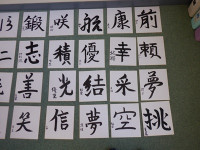 鍛 咲 航 康 前
志 積 優 幸 頼
善 光 結 采 夢
笑 信 夢 空 挑